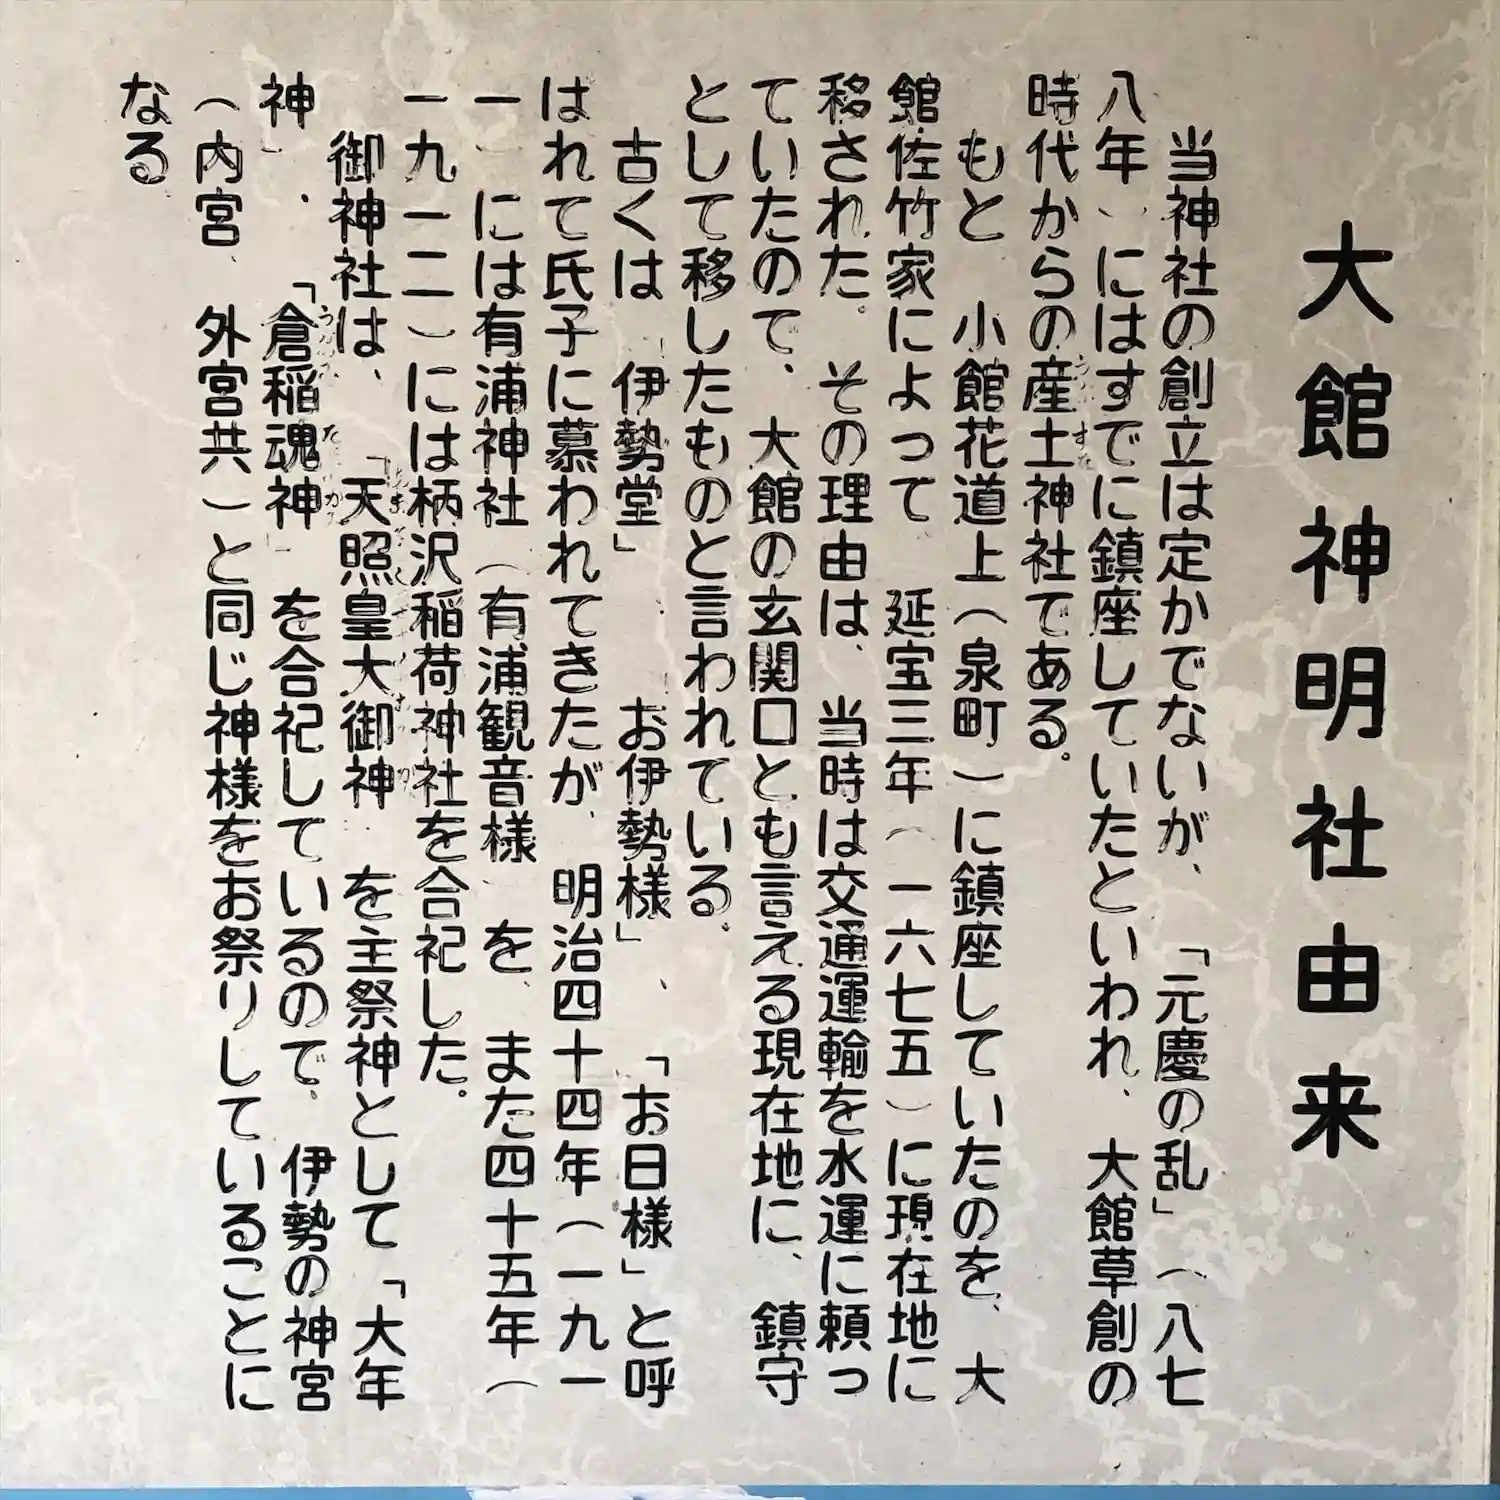 大館神明社由来
当神社の創立は定かでないが、「元慶の乱」(八七
八年)にはすでに鎮座していたといわれ、大館草創の
時代からの産土神社である。
もと 小館花道上(泉町)に鎮座していたのを、大
館佐竹家によって 延宝三年(一六七五)に現在地に
移された。その理由は、当時は交通運輸を水運に頼っ
ていたので、大館の玄関口とも言える現在地に、鎮守
として移したものと言われている。
古くは「伊勢堂」、「お伊勢様」、「お日様」と呼
はれて氏子に慕われてきたが、明治四十四年(一九一
一)には有浦神社(有浦観音様)を、また四十五年(
一九一二)には柄沢稲荷神社を合祀した。
御神社は、「天照皇大御神」を主祭神として「大年
神」、「倉稲魂神」を合祀しているので、伊勢の神宮
(内宮、外宮共)と同じ神様をお祭りしていることに
なる。